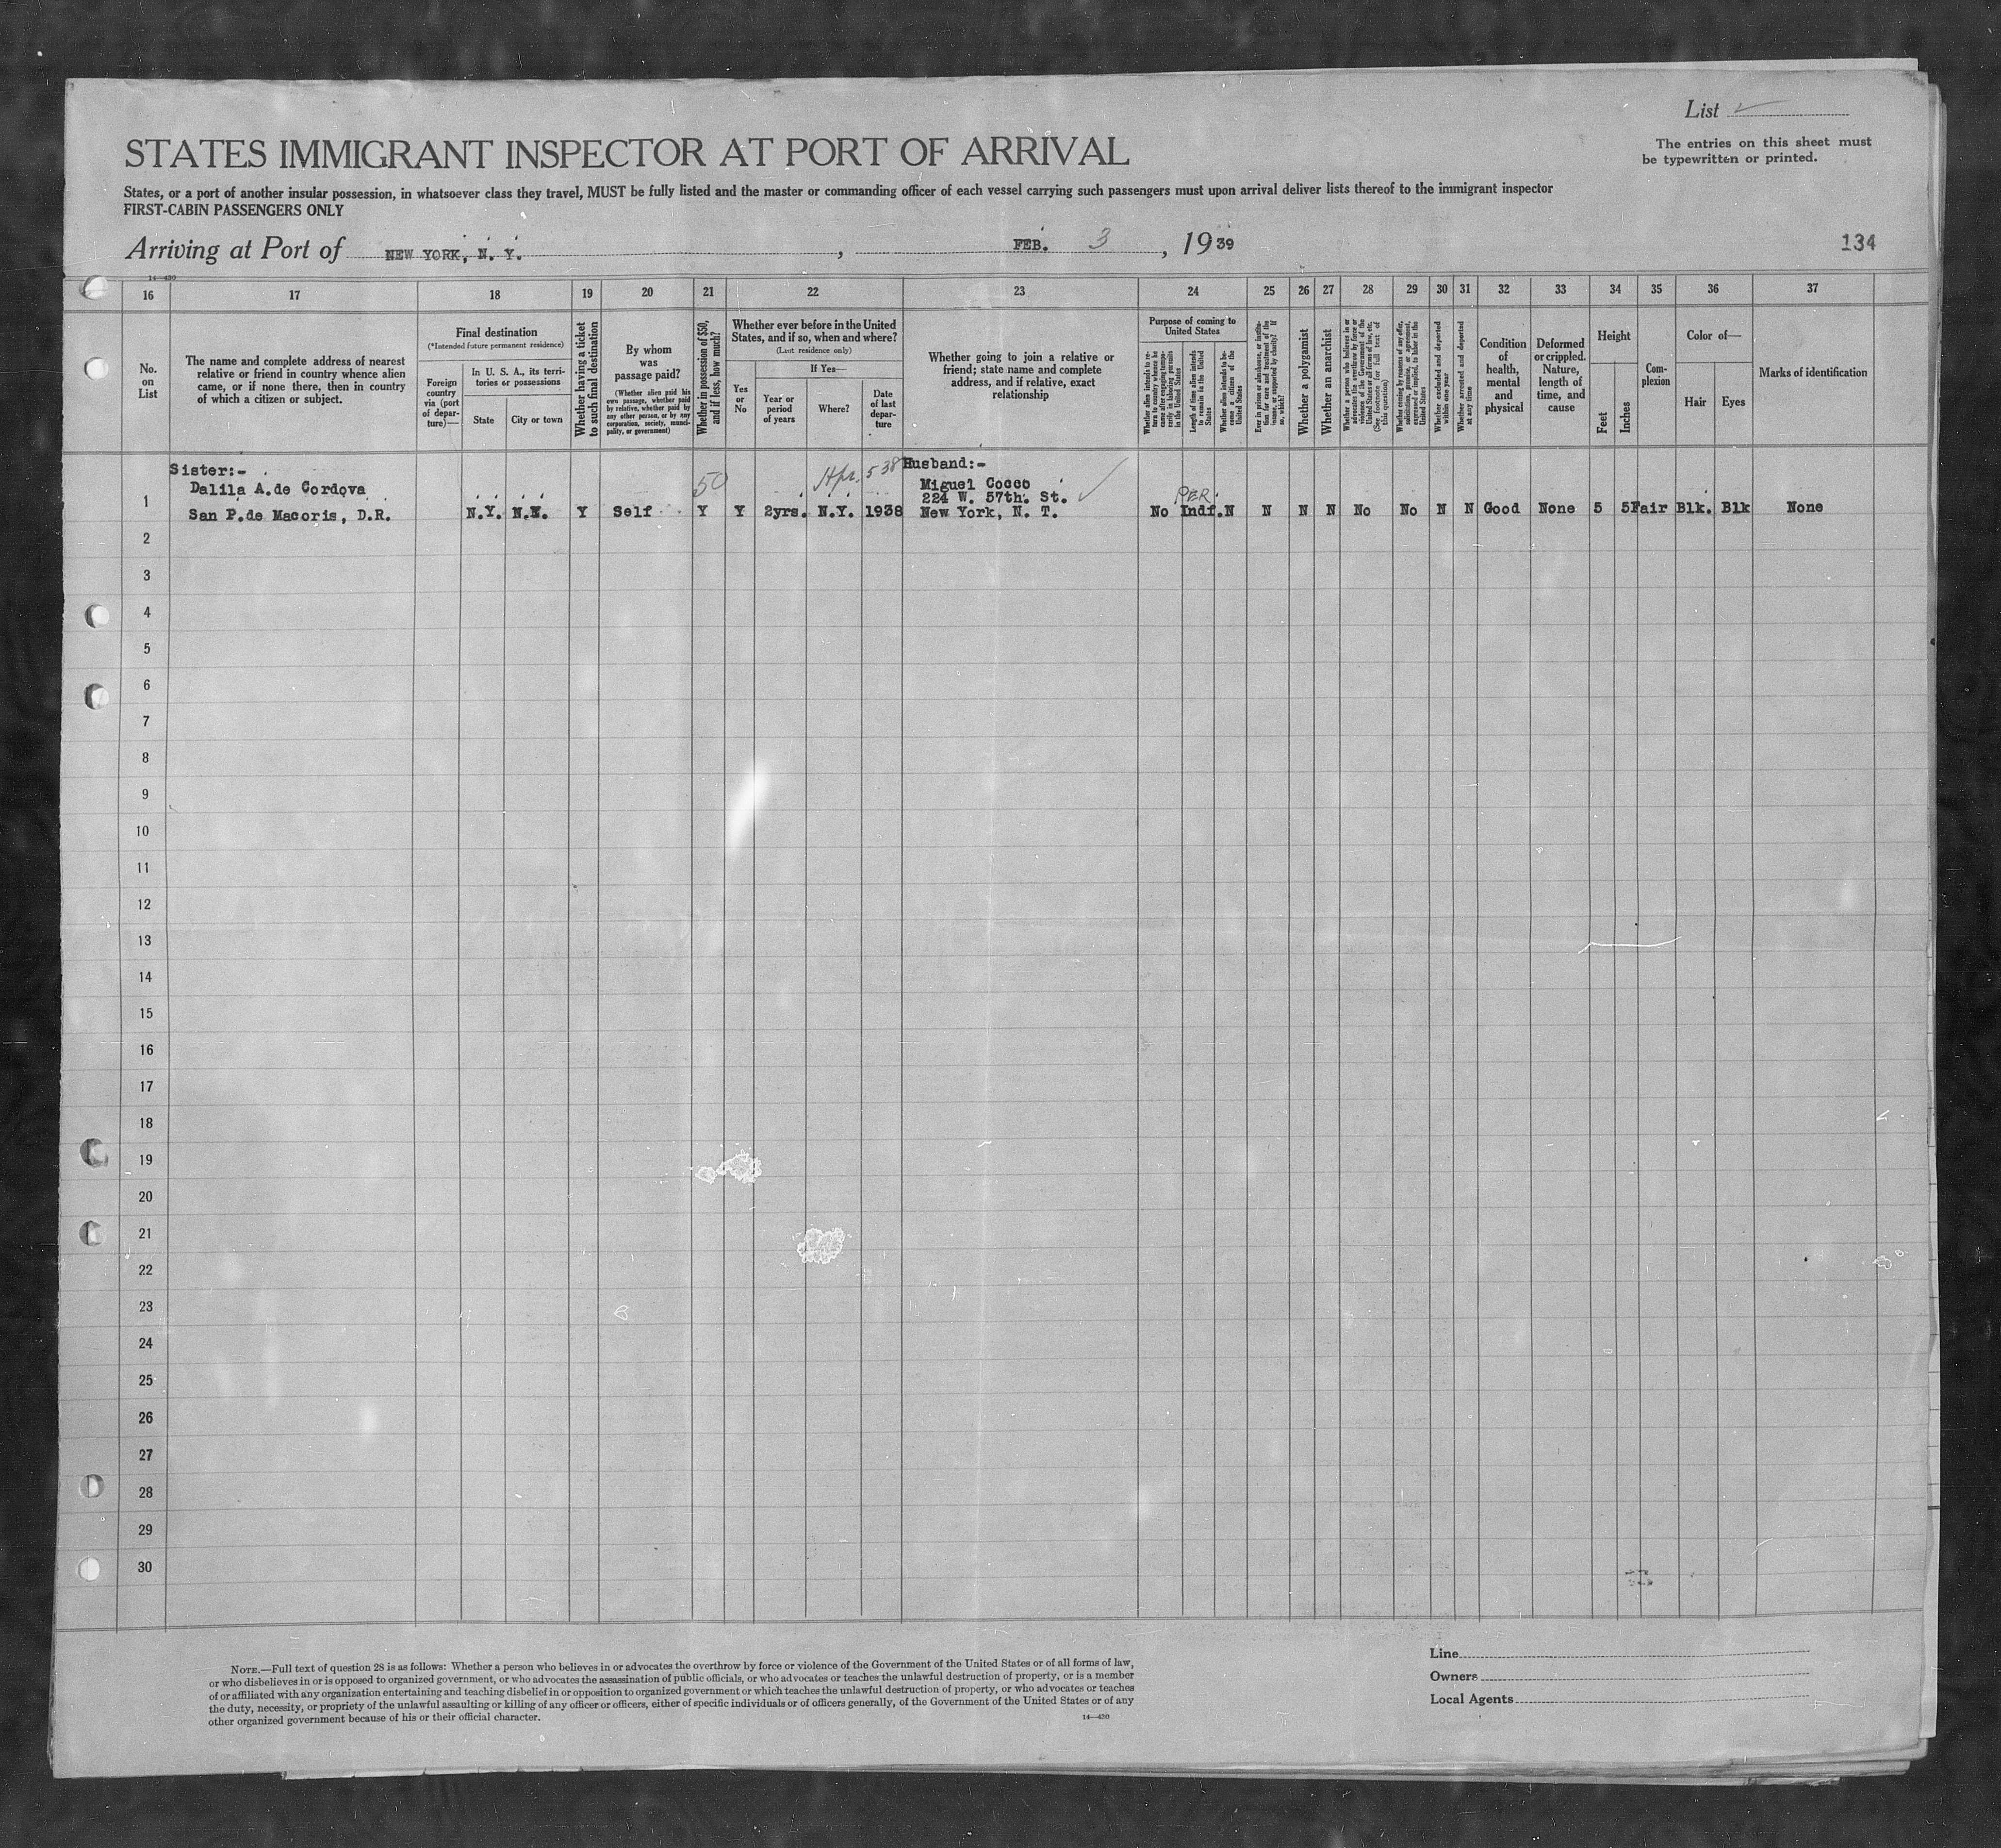 List
The entries on this sheet must
be typewritten or printed.
STATES IMMIGRANT INSPECTOR AT PORT OF ARRIVAL
States, or a port of another insular possession, in whatsoever class they travel, MUST be fully listed and the master or commanding officer of each vessel carrying such passengers must upon arrival deliver lists thereof to the immigrant inspector
FIRST-CABIN PASSENGERS ONLY
Arriving at Port of NEW YORK, N. Y. , FEB. 3 , 1939
134
14—430
16 17 18 19 20 21 22 23 24 25 26 27 28 29 30 31 32 33 34 35 36 37
No.
on
List
The name and complete address of nearest
relative or friend in country whence alien
came, or if none there, then in country
of which a citizen or subject.
Final destination
(*Intended future permanent residence)
Foreign
country
via (port
of depar-
ture)—
In U. S. A., its terri-
tories or possessions
State
City or town
Whether having a ticket
to such final destination
By whom
was
passage paid?
(Whether alien paid his
own passage, whether paid
by relative, whether paid by
any other person, or by any
corporation, society, munici-
pality, or government)
Whether in possession of $50,
and if less, how much?
Whether ever before in the United
States, and if so, when and where?
(Last residence only)
Yes
or
No
If Yes—
Year or
period
of years
Where?
Date
of last
depar-
ture
Whether going to join a relative or
friend; state name and complete
address, and if relative, exact
relationship
Purpose of coming to
United States
Whether alien intends to re-
turn to country whence he
came after engaging tempo-
rarily in laboring pursuits
in the United States
Length of time alien intends
to remain in the United
States
Whether alien intends to be-
come a citizen of the
United States
Ever in prison or almshouse, or institu-
tion for care and treatment of the
insane, or supported by charity? If
so, which?
Whether a polygamist
Whether an anarchist
Whether a person who believes in or
advocates the overthrow by force or
violence of the Government of the
United States or all forms of law, etc.
(See footnote for full text of
this question)
Whether coming by reasons of any offer,
solicitation, promise, or agreement,
expressed or implied, to labor in the
United States
Whether excluded and deported
within one year
Whether arrested and deported
at any time
Condition
of
health,
mental
and
physical
Deformed
or crippled.
Nature,
length of
time, and
cause
Height
Feet
Inches
Com-
plexion
Color of—
Hair
Eyes
Marks of identification
Sister:-
Dalila A.de Cordova
San P.de Macoris, D.R.
50
Apr. 5 38
Husband:-
Miguel Cocco
224 W. 57th. St.
New York, N. T.
PER.
1 N.Y. N.Y. Y Self Y Y 2yrs. N.Y. 1938 No Indf. N N N N No No N N Good None 5 5 Fair Blk. Blk None
2
3
4
5
6
7
8
9
10
11
12
13
14
15
16
17
18
19
20
21
22
23
24
25
26
27
28
29
30
NOTE.—Full text of question 28 is as follows: Whether a person who believes in or advocates the overthrow by force or violence of the Government of the United States or of all forms of law,
or who disbelieves in or is opposed to organized government, or who advocates the assassination of public officials, or who advocates or teaches the unlawful destruction of property, or is a member
of or affiliated with any organization entertaining and teaching disbelief in or opposition to organized government or which teaches the unlawful destruction of property, or who advocates or teaches
the duty, necessity, or propriety of the unlawful assaulting or killing of any officer or officers, either of specific individuals or of officers generally, of the Government of the United States or of any
other organized government because of his or their official character.
14—430
Line
Owners
Local Agents